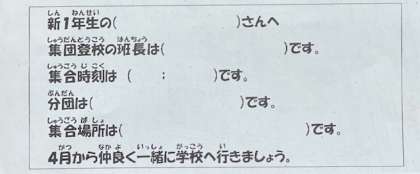 新1年生の(　　　　　　)さんへ
集団登校の班長は(　　　　　　)です。
集合時刻は (　　:　　)です。
分団は(　　　　　　)です。
集合場所は(　　　　　　)です。
4月から仲良く一緒に学校へ行きましょう。